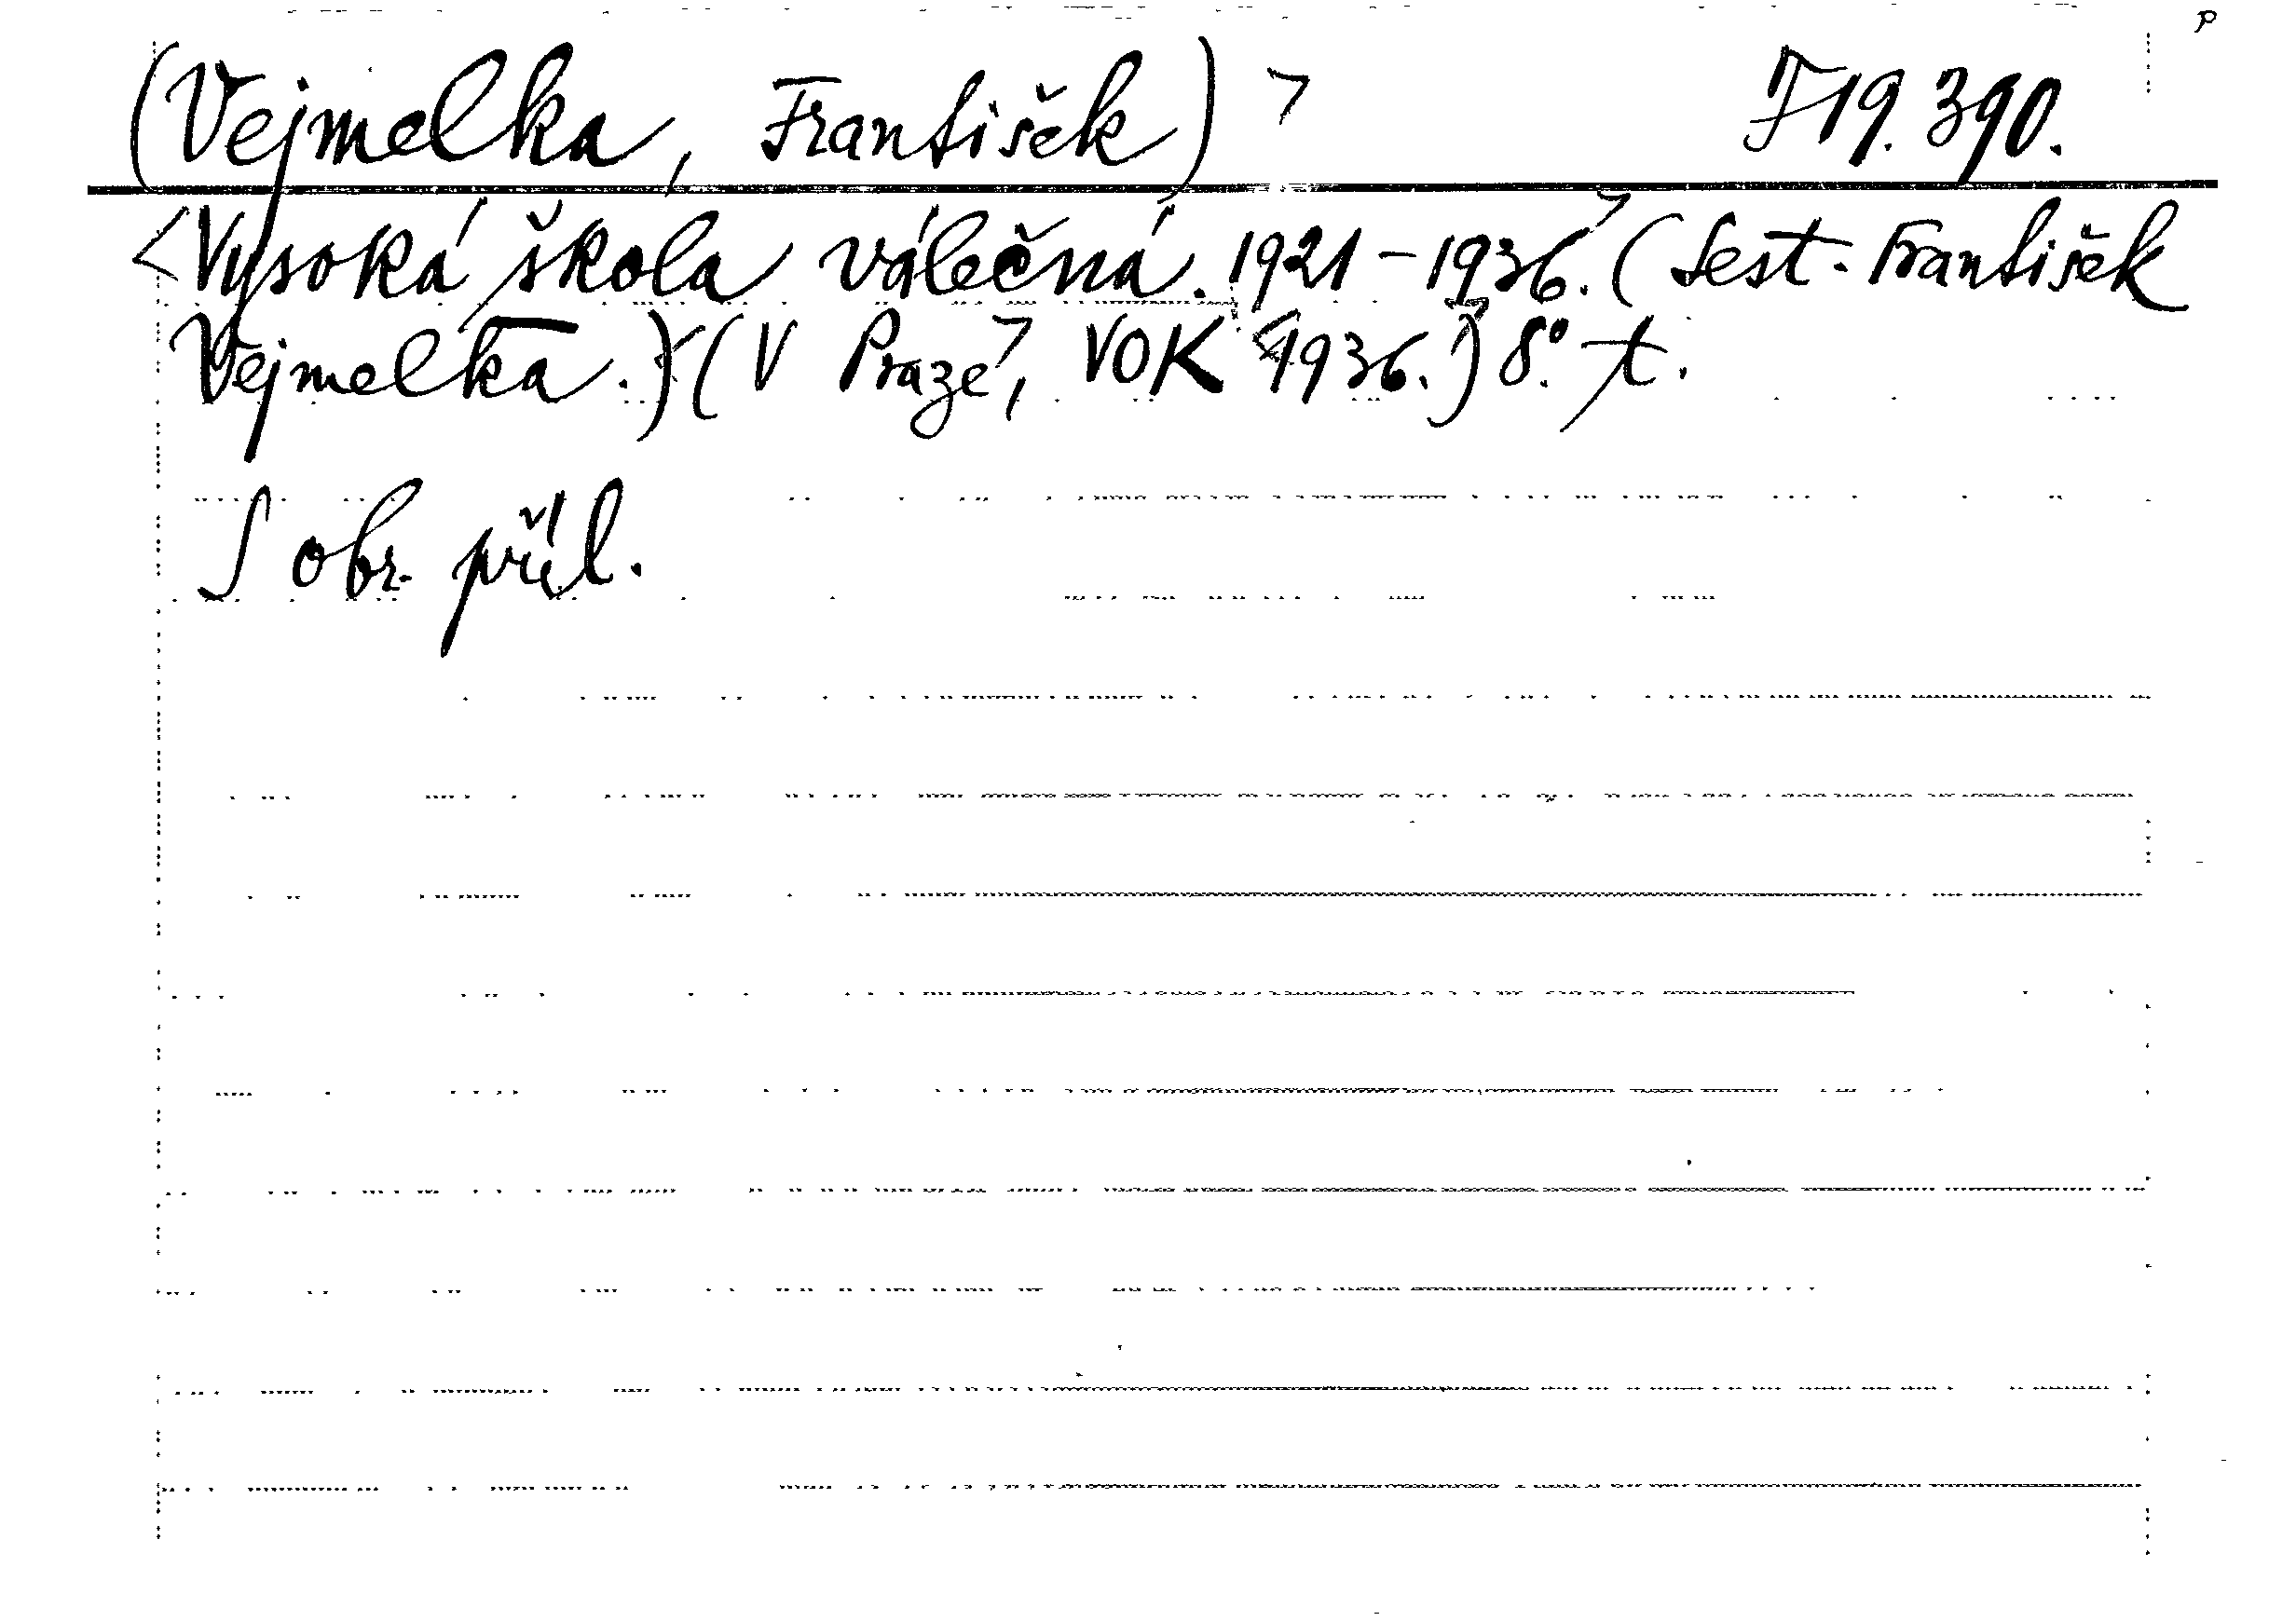 p
(Vejmelka, František) > F 19.390.
<Vysoká škola válečná. 1921-1936.> (Sest. František
Vejmelka.) (V Praze, VOK 1936.) 8° t.
S obr. příl.